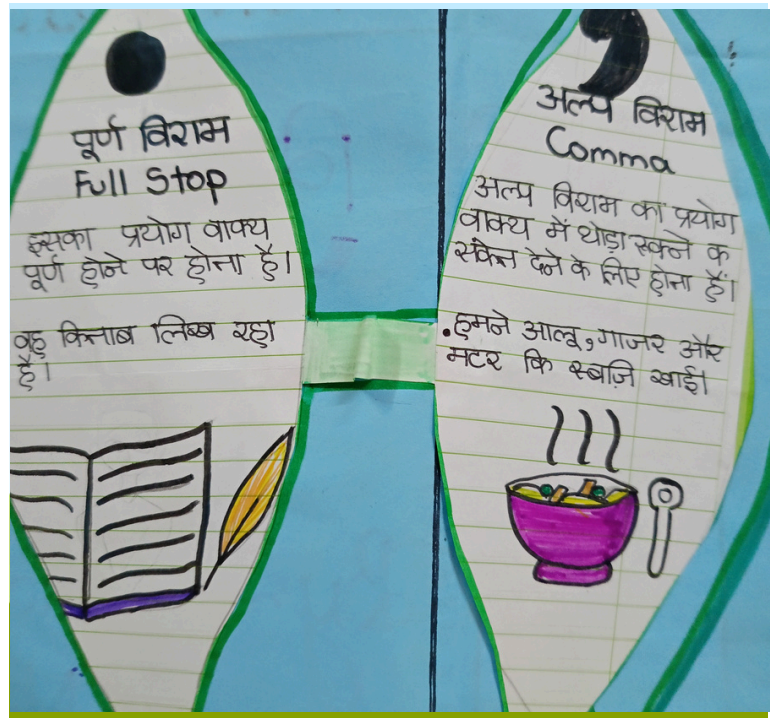 पूर्ण विराम
Full Stop
इसका प्रयोग वाक्य
पूर्ण होने पर होता है।
वह किताब लिख रहा
है।
अल्प विराम
Comma
अल्प विराम का प्रयोग
वाक्य में थोड़ा रुकने क
संकेत देने के लिए होता हैं।
.हमने आलू,गाजर और
मटर कि स्बज़ि खाई।